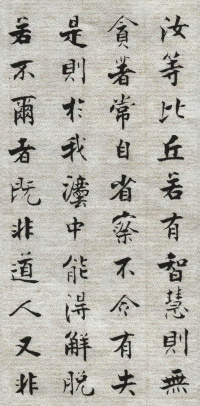 汝等比丘若有智慧則無
貪著常自省察不令有失
是則於我瀍中能得解脫
若不爾者既非道人又非